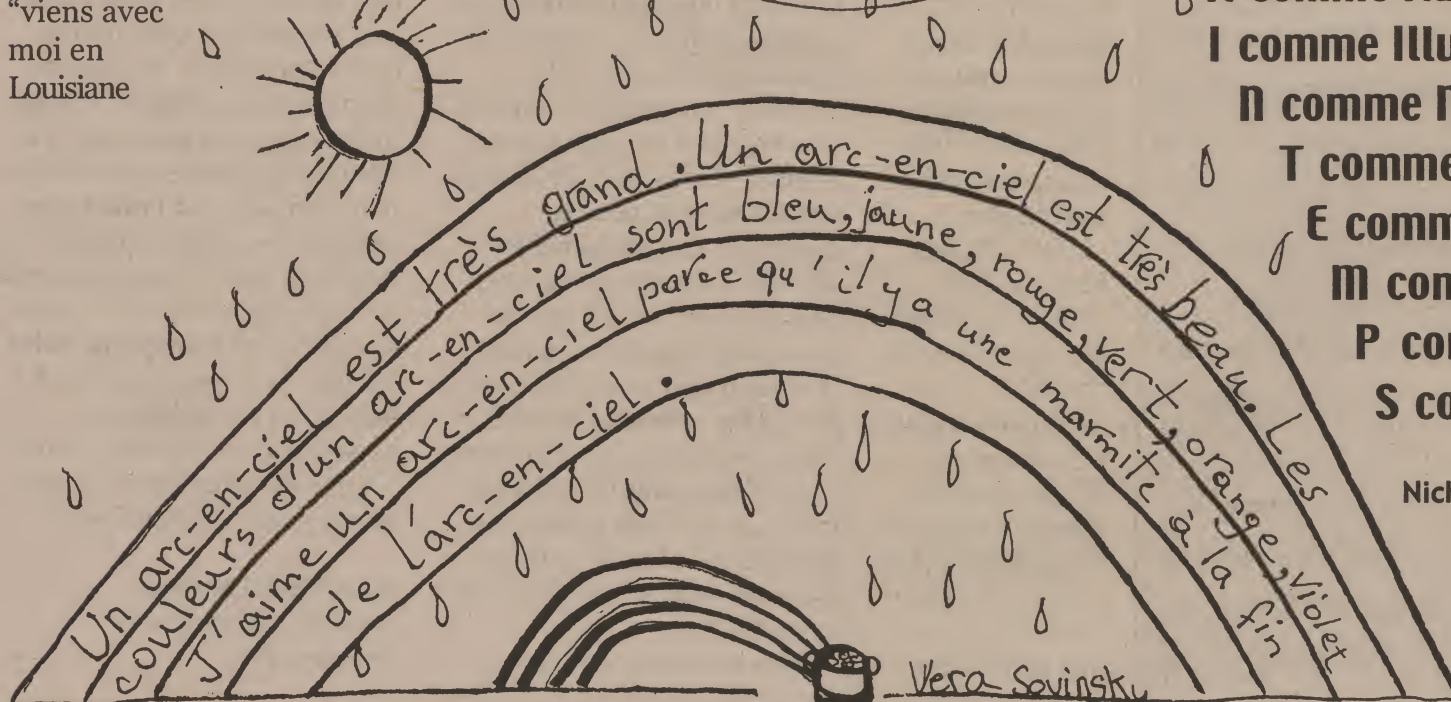 "viens avec
moi en
Louisiane
Un arc-en-ciel est très grand. Un arc-en-ciel est très beau. Les
couleurs d'un arc-en-ciel sont bleu, jaune, rouge, vert, orange, violet
J'aime un arc-en-ciel parce qu'il y a une marmite à la fin
de l'arc-en-ciel.
Vera Sovinsky
I comme
N comme
T comme
E
M
P
S